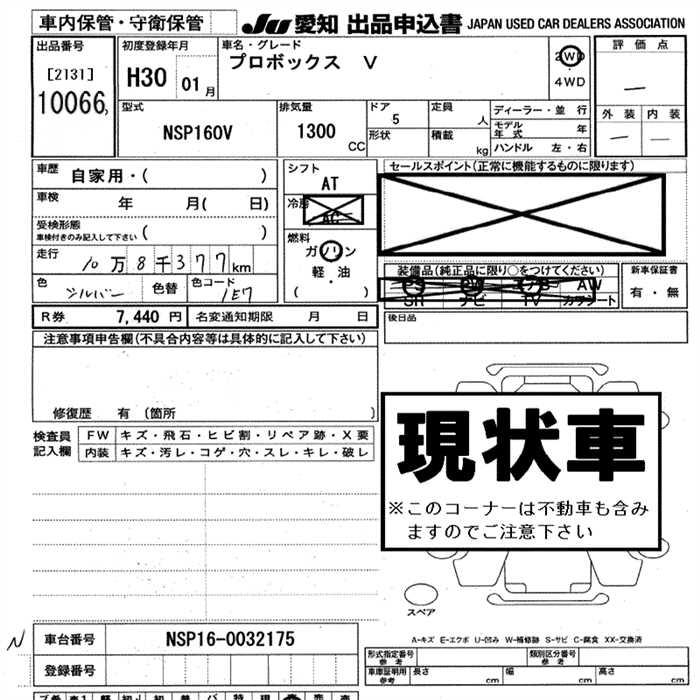 車内保管・守衛保管
JU 愛知 出品申込書 JAPAN USED CAR DEALERS ASSOCIATION
出品番号
[2131]
10066
初度登録年月
H30 01月
車名・グレード
プロボックス V
2WD
・
4WD
評価点
—
外装 内装
— —
型式
NSP160V
排気量
1300
CC
ドア
5
形状
定員
人
積載
kg
ディーラー・並 行
モデル年式 年
ハンドル 左・右
車歴
自家用・( )
車検
年 月( 日)
受検形態
車検付きのみ記入して下さい ( )
走行
10万8千377km
色
シルバー
色替
色コード
1E7
シフト
AT
冷房
AC
燃料
ガソリン
軽・油
( )
セールスポイント(正常に機能するものに限ります)
装備品(純正品に限り○をつけてください)
PS PW エアB AW
SR ナビ TV カワシート
新車保証書
有・無
R券 7,440円 名変通知期限 月 日
後日品
注意事項申告欄(不具合内容等は具体的に記入して下さい)
修復歴 有 (箇所 )
検査員
記入欄
FW キズ・飛石・ヒビ割・リペア跡・X要
内装 キズ・汚レ・コゲ・穴・スレ・キレ・破レ
現状車
※このコーナーは不動車も含み
ますのでご注意下さい
スペア
A-キズ E-エクボ U-凹み W-補修跡 S-サビ C-腐食 XX-交換済
N
車台番号 NSP16-0032175
登録番号
形式指定番号
参考
類別区分番号
参考
車庫証明用
参考
長さ cm 幅 cm 高さ cm